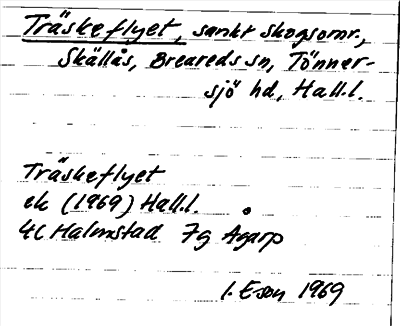 Träskeflyet, sankt skogsomr.,
Skällås, Breareds sn, Tönner-
sjö hd, Hall.l.
Träskeflyet
ek (1969) Hall.l.
4C Halmstad 7g Årarp
I. Eson 1969